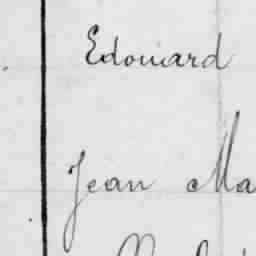 Edouard
Jean Ma